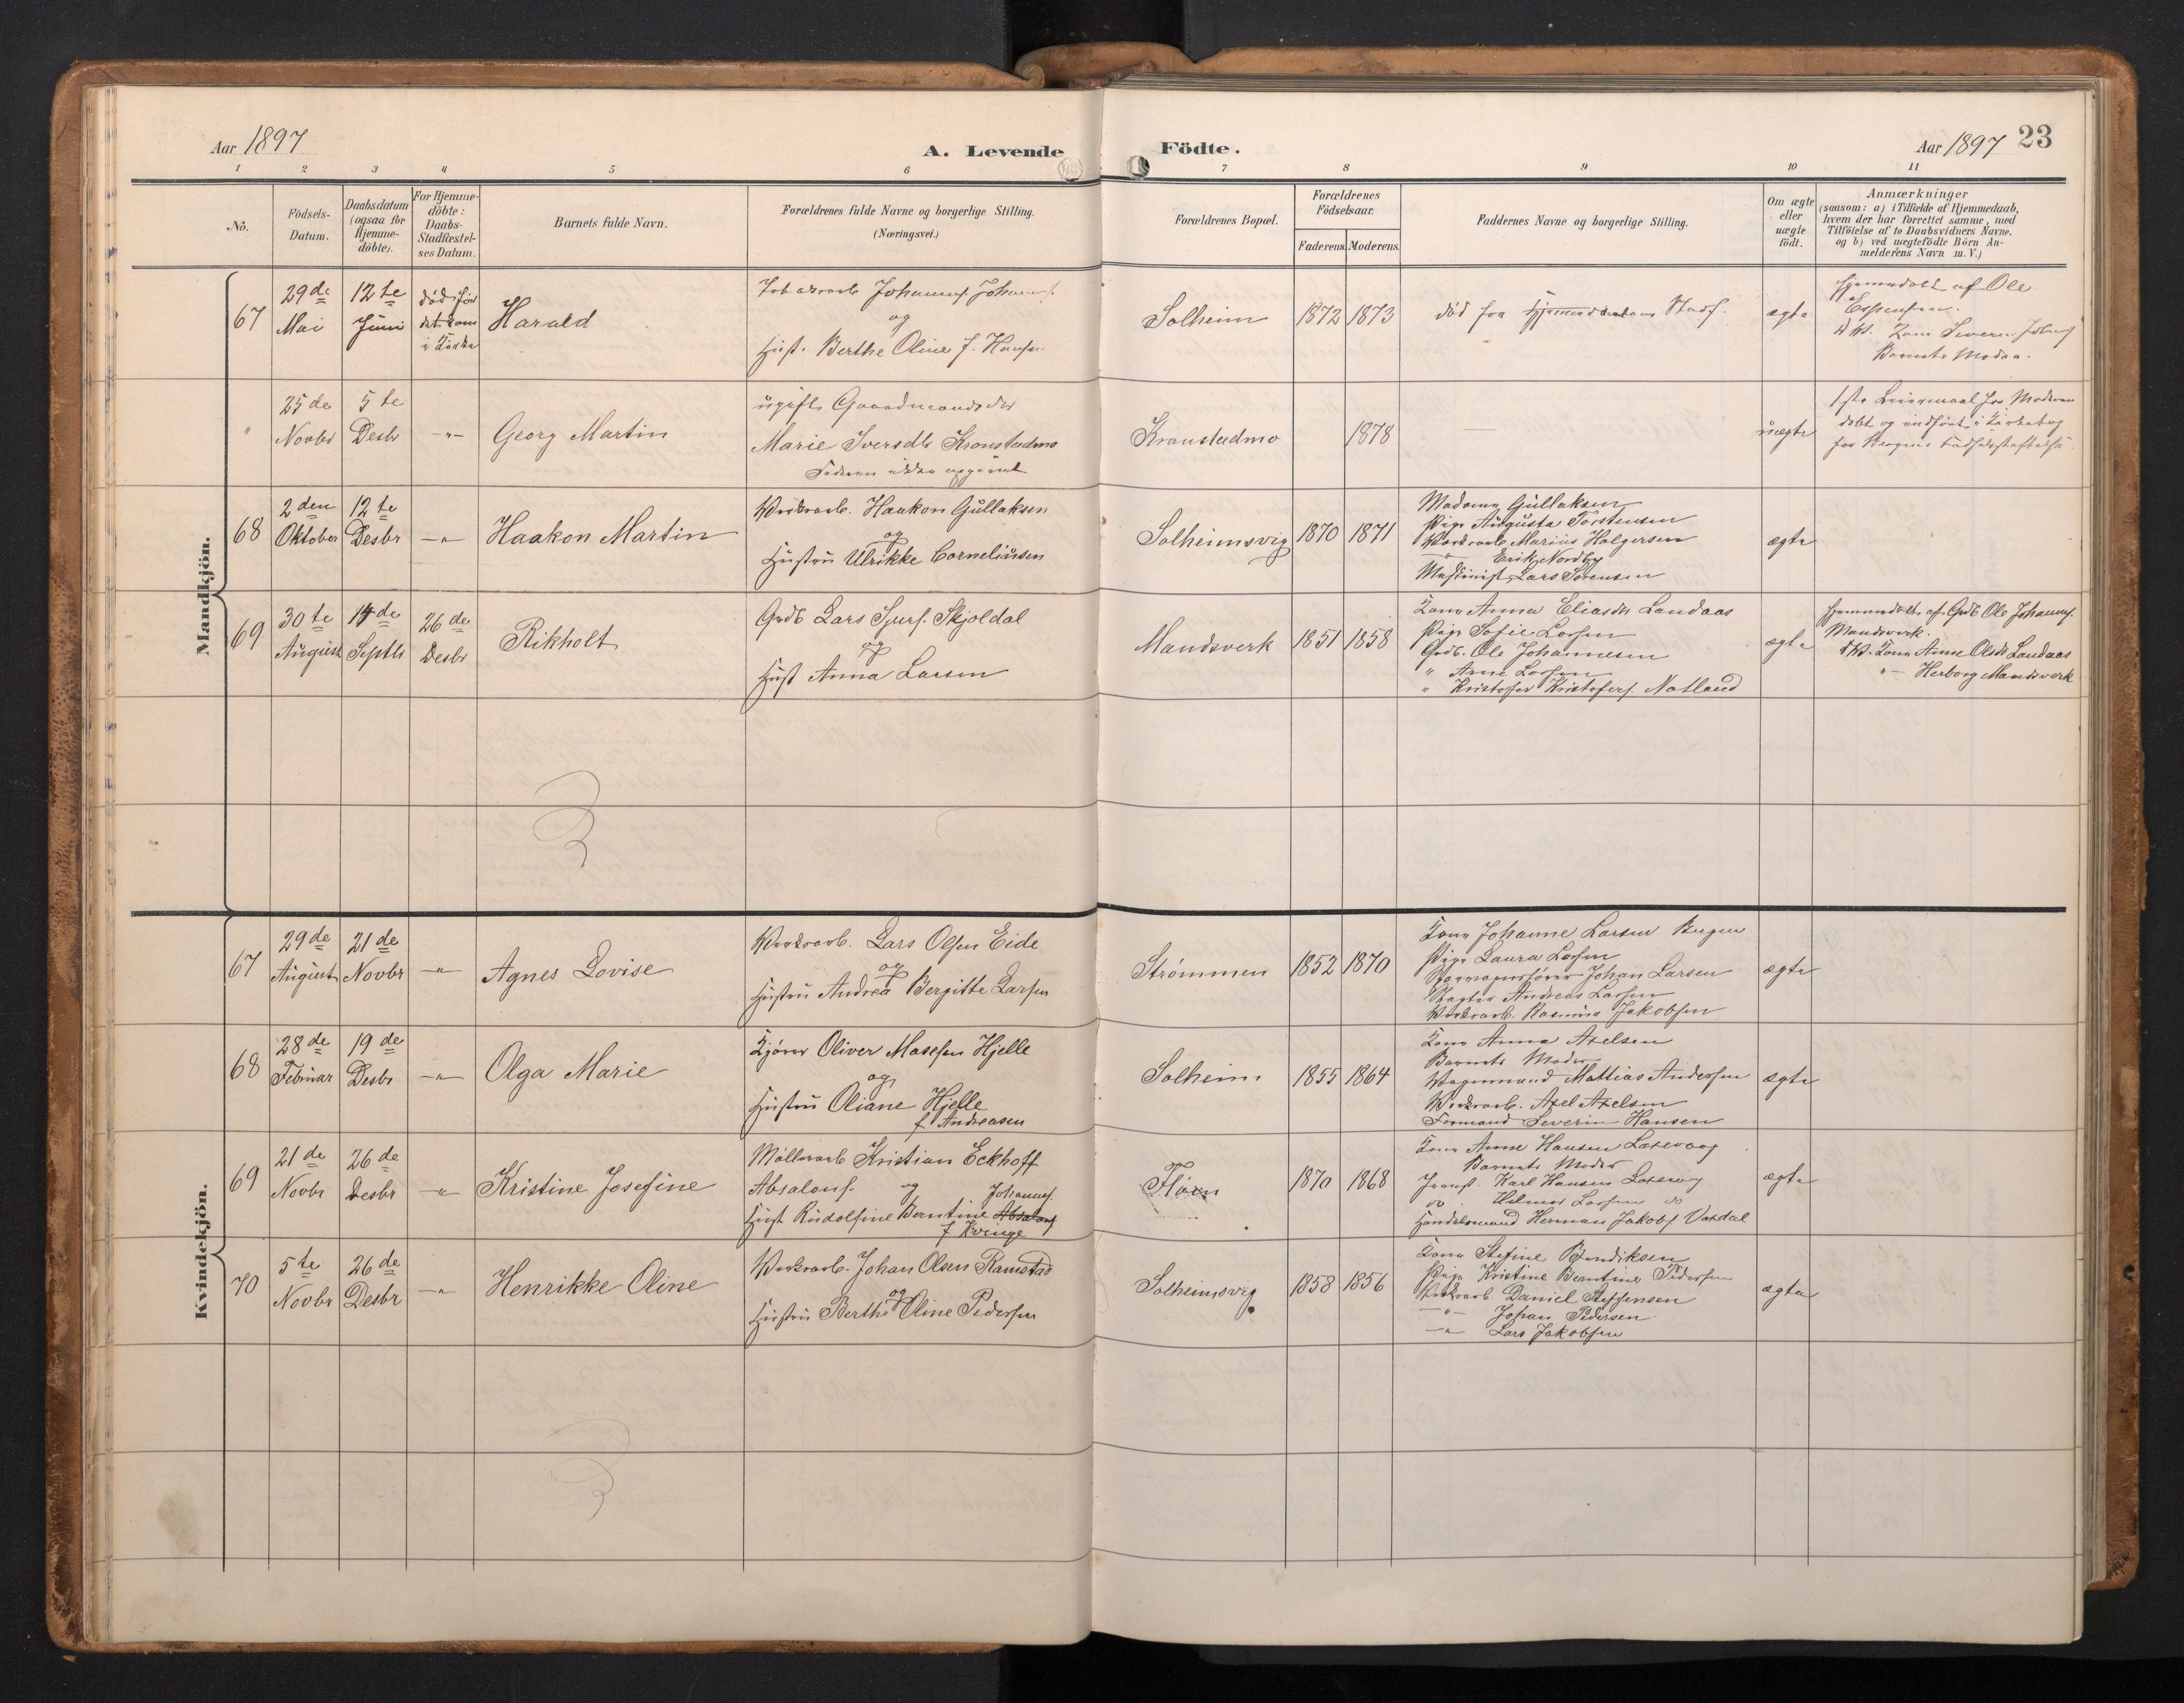 Aar 1897
A. Levende Födte.
Aar 1897 23
1 2 3 4 5 6 7 8 9 10 11
No.
Födsels-Datum.
Daabsdatum (ogsaa for Hjemme-döbte).
For Hjemme-döbte: Daabs-Stadfæstel-ses Datum.
Barnets fulde Navn.
Forældrenes fulde Navne og borgerlige Stilling. (Næringsvei.)
Forældrenes Bopæl.
Forældrenes Födselsaar.
Faderens. Moderens.
Faddernes Navne og borgerlige Stilling.
Om ægte eller uægte födt.
Anmærkninger (saasom: a) i Tilfælde af Hjemmedaab, hvem der har forrettet samme, med Tilföielse af to Daabsvidners Navne, og b) ved uægtefödte Börn An-melderens Navn m. V.)
Mandkjön.
67
29de Mai
12te Juni
död før det kom i Kirke
Harald
Johannes Johannes.
og
Hust. Berthe Oline f. Hansen
Solheim
1872 1873
död før Stadf.
ægte
Hjemmedøbt af Ole
Espensen.
Barnets Moder.
"
25de Novbr
5te Desbr
-"-
Georg Martin
ugift Gaardmandsdtr
Marie Iversdtr Kronstadmo
Faderen ikke opgivet
Kronstadmo
1878
—
uægte
1ste Leiermaal for Moderen
døbt og indført i Kirkebog
for Bergens Fødselsstiftelse
68
2den Oktober
12te Desbr
-"-
Haakon Martin
Verksarb. Haakon Gullaksen
og
Hustru Ulrikke Corneliusen
Solheimsvig
1870 1871
Madame Gullaksen
Pige Augusta Torstensen
Verksarb. Marius Holgersen
-"- Erik Nordby
Maskinist Lars Sørensen
ægte
69
30te August
14de Septbr
26de Desbr
Rikholt
Grdb. Lars Sjurs. Skjoldal
og
Hust Anna Larsen
Mandsverk
1851 1858
Kone Anna Eliasdtr Landaas
Pige Sofie Larsen
Grdb. Ole Johannesen
" Arne Larsen
" Kristofer Kristofers. Natland
ægte
Hjemmedøbt af Grdb Ole Johannes.
Mandsverk.
D.V. Kone Anne Olsdtr Landaas
"- Herborg Mandsverk
Kvindekjön.
67
29de August
21de Novbr
-"-
Agnes Lovise
Verksarb. Lars Olsen Eide
og
Hustru Andrea Bergitte Larsen
Strømmen
1852 1870
Kone Johanne Larsen Bergen
Pige Laura Larsen
Johan Larsen
Slagter Andreas Larsen
Verksarb. Rasmus Jakobsen
ægte
68
28de Februar
19de Desbr
-"-
Olga Marie
Kjører Oliver Mosesen Hjelle
og
Hustru Oliane Hjelle
f. Andreasen
Solheim
1855 1864
Kone Anna Axelsen
Barnets Moder
Vognmand Mattias Andersen
Verksarb. Axel Axelsen
Formand Severin Hansen
ægte
69
21de Novbr
26de Desbr
-"-
Kristine Josefine
Møllerarb Kristian Eckhoff
Absalons. og Johannes.
Hust Rudolfine Berntine Absalons
f Kvinge
Fløen
1870 1868
Kone Anne Hansen Laxevaag
Barnets Moder
Karl Hansen Laxevaag
do Hilmar Larsen do
Handelsmand Herman Jakobs Vaxdal
ægte
70
5te Novbr
26de Desbr
-"-
Henrikke Oline
Verksarb. Johan Olsen Ramstad
og
Hustru Berthe Oline Pedersen
Solheimsvig
1858 1856
Kone Stefine Bendiksen
Pige Kristine Berntine Pedersen
Verksarb. Daniel Steffensen
-"- Johan Pedersen
-"- Lars Jakobsen
ægte